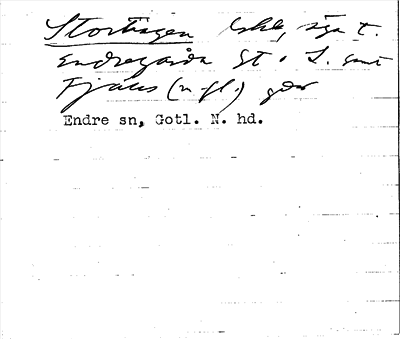 Storhagen bkl, äga t.
Endregårda St. o L. samt
Fjäls (m fl.) gdr
Endre sn, Gotl. N. hd.